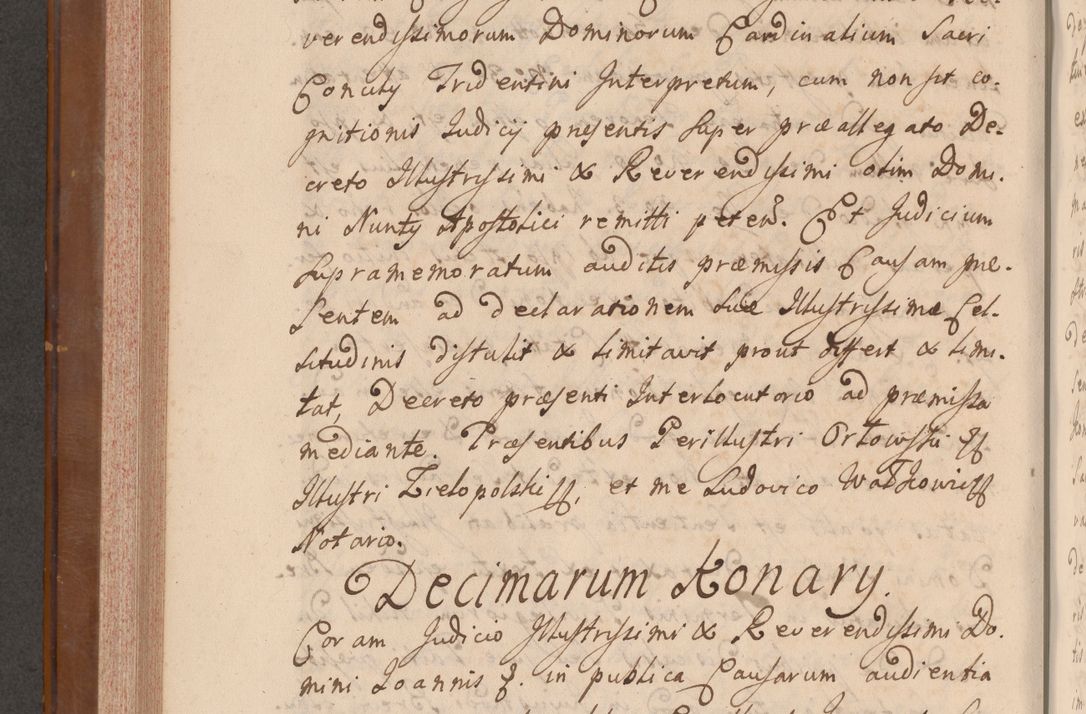 verendissimorum Dominorum Cardinalium Sacri
Concilij Tridentini Interpretum, cum non sit co-
gnitionis Judicij præsentis super præallegato De-
creto Illustrissimi & Reverendissimi olim Domi-
ni Nuntij Apostolici remitti peten. Et Judicium
supramemoratum auditis præmissis Causam præ-
sentem ad declarationem suæ Illustrissimæ Cel-
situdinis distulit & limitavit prout differt & limi-
tat, Decreto præsenti Interlocutorio ad præmissa
mediante. Præsentibus Perillustri Orłowski
Illustri Zielopolski, et me Ludovico
Notario.
Decimarum Konary.
Coram Judicio Illustrissimi & Reverendissimi Do-
mini Joannis &. in publica Causarum audientia